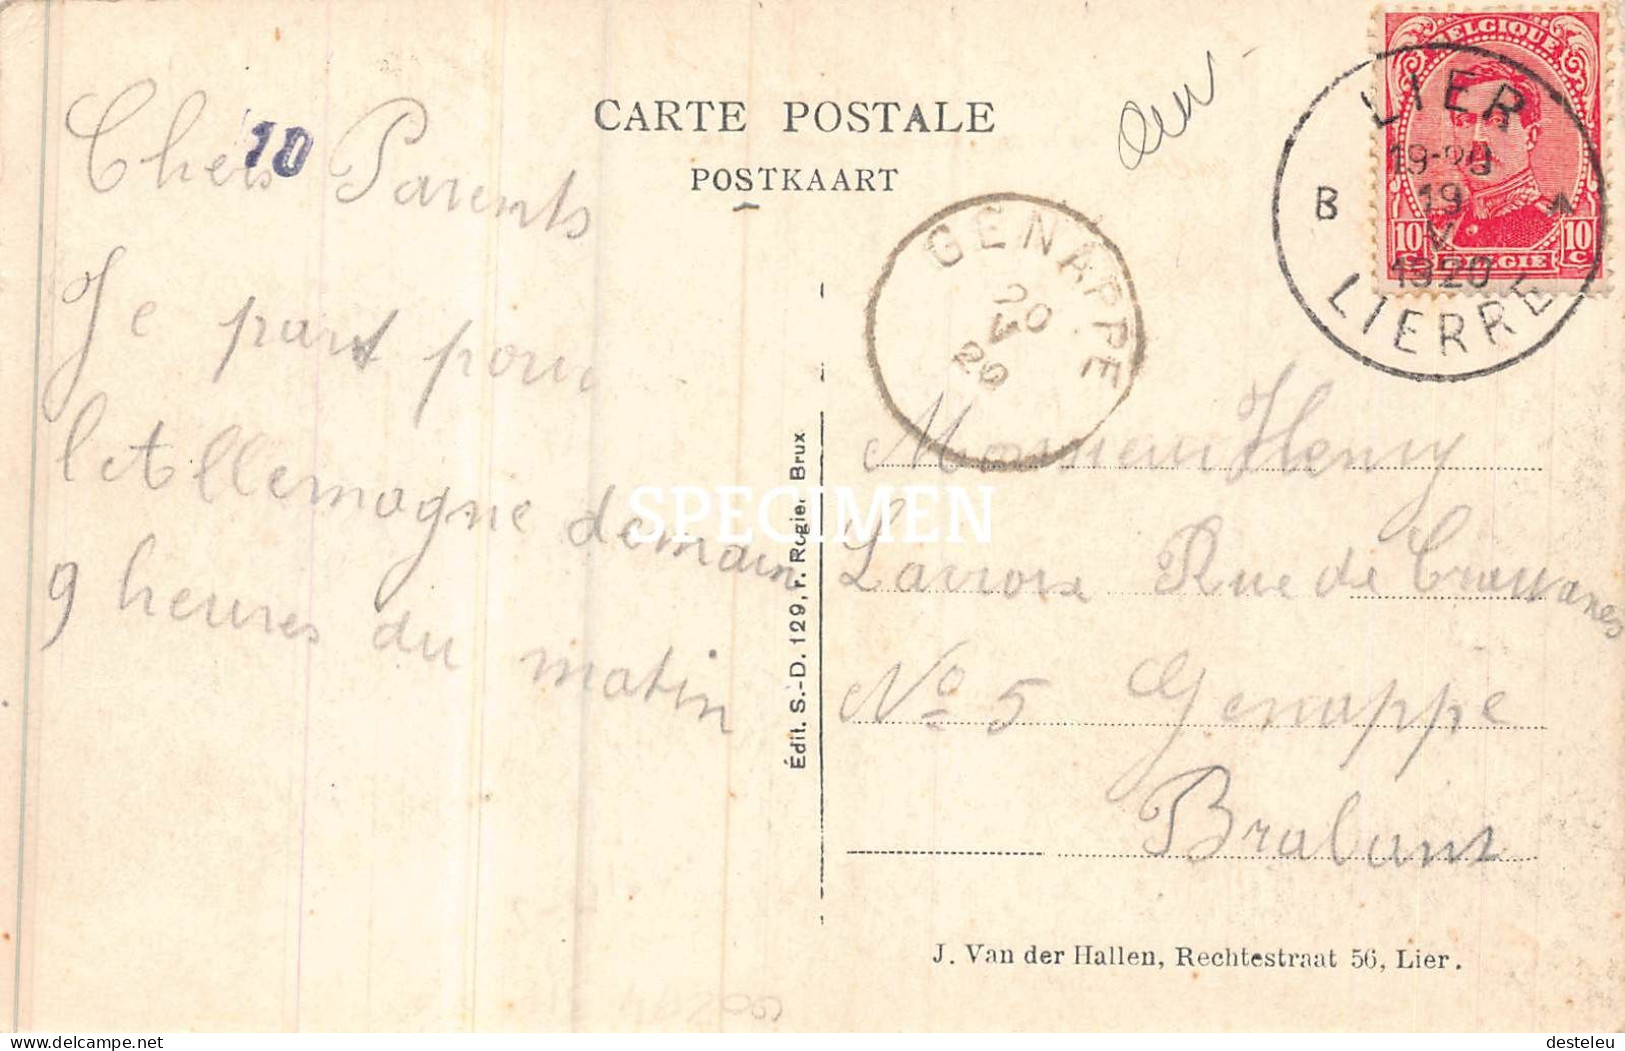 CARTE POSTALE
POSTKAART
BELGIQUE
10 c
10 c
BELGIE
LIER
19-20
19
V
1920
B
LIERRE
GENAPPE
20
V
20
10
Chers Parents
Je part pour
l'Allemagne demain
9 heures du matin
Édit. S.-D. 129, r. Rogier Brux
SPECIMEN
Monsieur Henry
Lacroix Rue de
No 5 Genappe
Brabant
J. Van der Hallen, Rechtestraat 56, Lier.
delcampe.net
desteleu